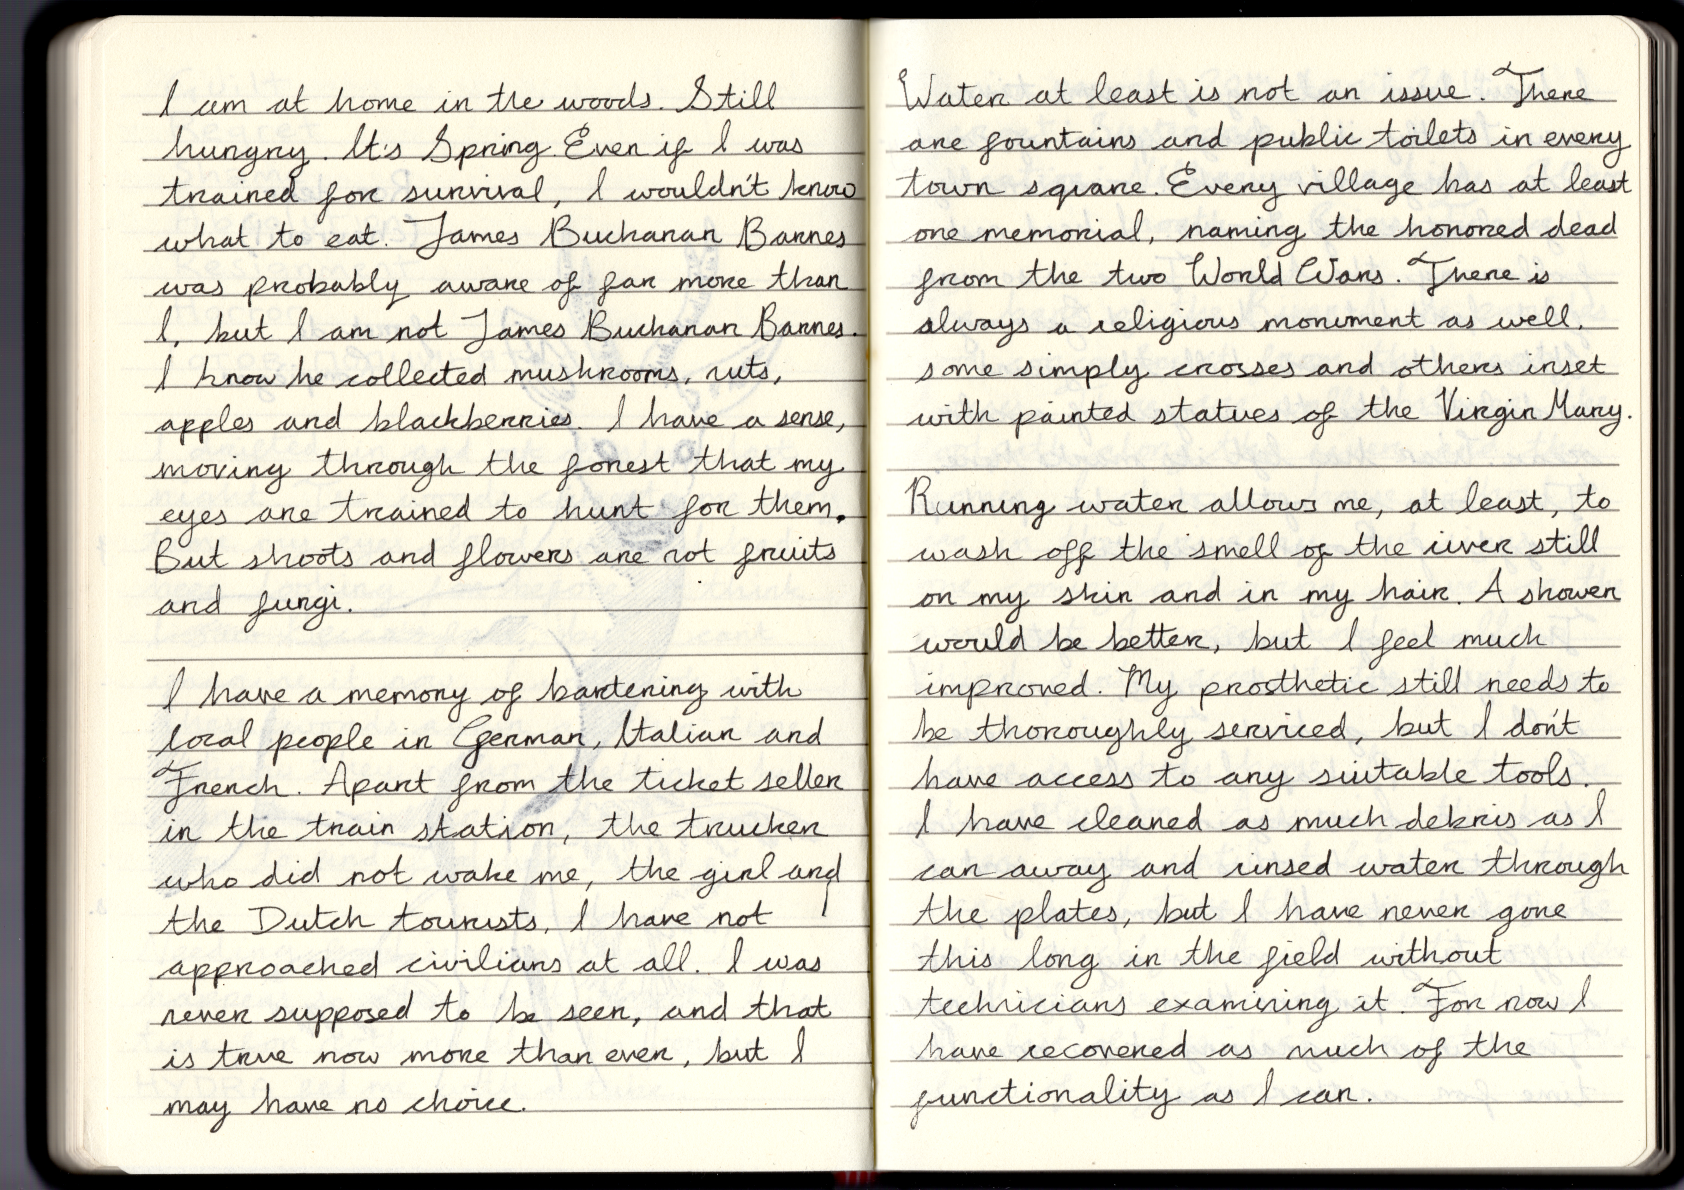 I am at home in the woods. Still
hungry. It's Spring. Even if I was
trained for survival, I wouldn't know
what to eat. James Buchanan Barnes
was probably aware of far more than
I, but I am not James Buchanan Barnes.
I know he collected mushrooms, nuts,
apples and blackberries. I have a sense,
moving through the forest that my
eyes are trained to hunt for them.
But shoots and flowers are not fruits
and fungi.
I have a memory of bartering with
local people in German, Italian and
French. Apart from the ticket seller
in the train station, the trucker
who did not wake me, the girl and
the Dutch tourists, I have not
approached civilians at all. I was
never supposed to be seen, and that
is true now more than ever, but I
may have no choice.
Water at least is not an issue. There
are fountains and public toilets in every
town square. Every village has at least
one memorial, naming the honored dead
from the two World Wars. There is
always a religious monument as well,
some simply crosses and others inset
with painted statues of the Virgin Mary.
Running water allows me, at least, to
wash off the smell of the river still
on my skin and in my hair. A shower
would be better, but I feel much
improved. My prosthetic still needs to
be thoroughly serviced, but I don't
have access to any suitable tools.
I have cleaned as much debris as I
can away and rinsed water through
the plates, but I have never gone
this long in the field without
technicians examining it. For now I
have recovered as much of the
functionality as I can.